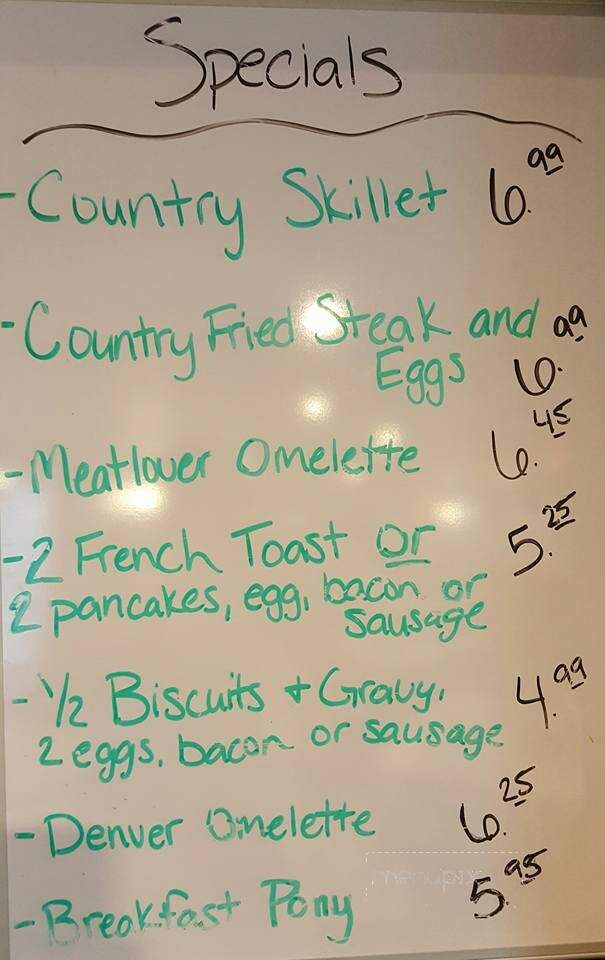 Specials
- Country Skillet 6.99
- Country Fried Steak and
Eggs 6.99
- Meatlover Omelette 6.45
- 2 French Toast or 5.25
2 pancakes, egg, bacon or
sausage
- 1/2 Biscuits + Gravy, 4.99
2 eggs, bacon or sausage
- Denver Omelette 6.25
- Breakfast Pony 5.95
menupix